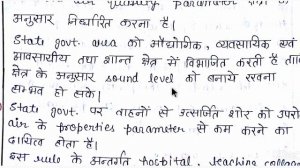 air quality, parameter
अनुसार निर्धारित करना है।
State govt. area को औद्योगिक, व्यवसायिक एवं
आवासीय तथा शान्त क्षेत्र में विभाजित करती है ताकि
क्षेत्र के अनुसार sound level को बनाये रखना
सम्भव हो सके।
State govt. पर वाहनों से उत्सर्जित शोर को उपरो
air के properties parameter से कम करने का
दायित्व होता है।
इस rule के अन्तर्गत hospital, teaching colleg